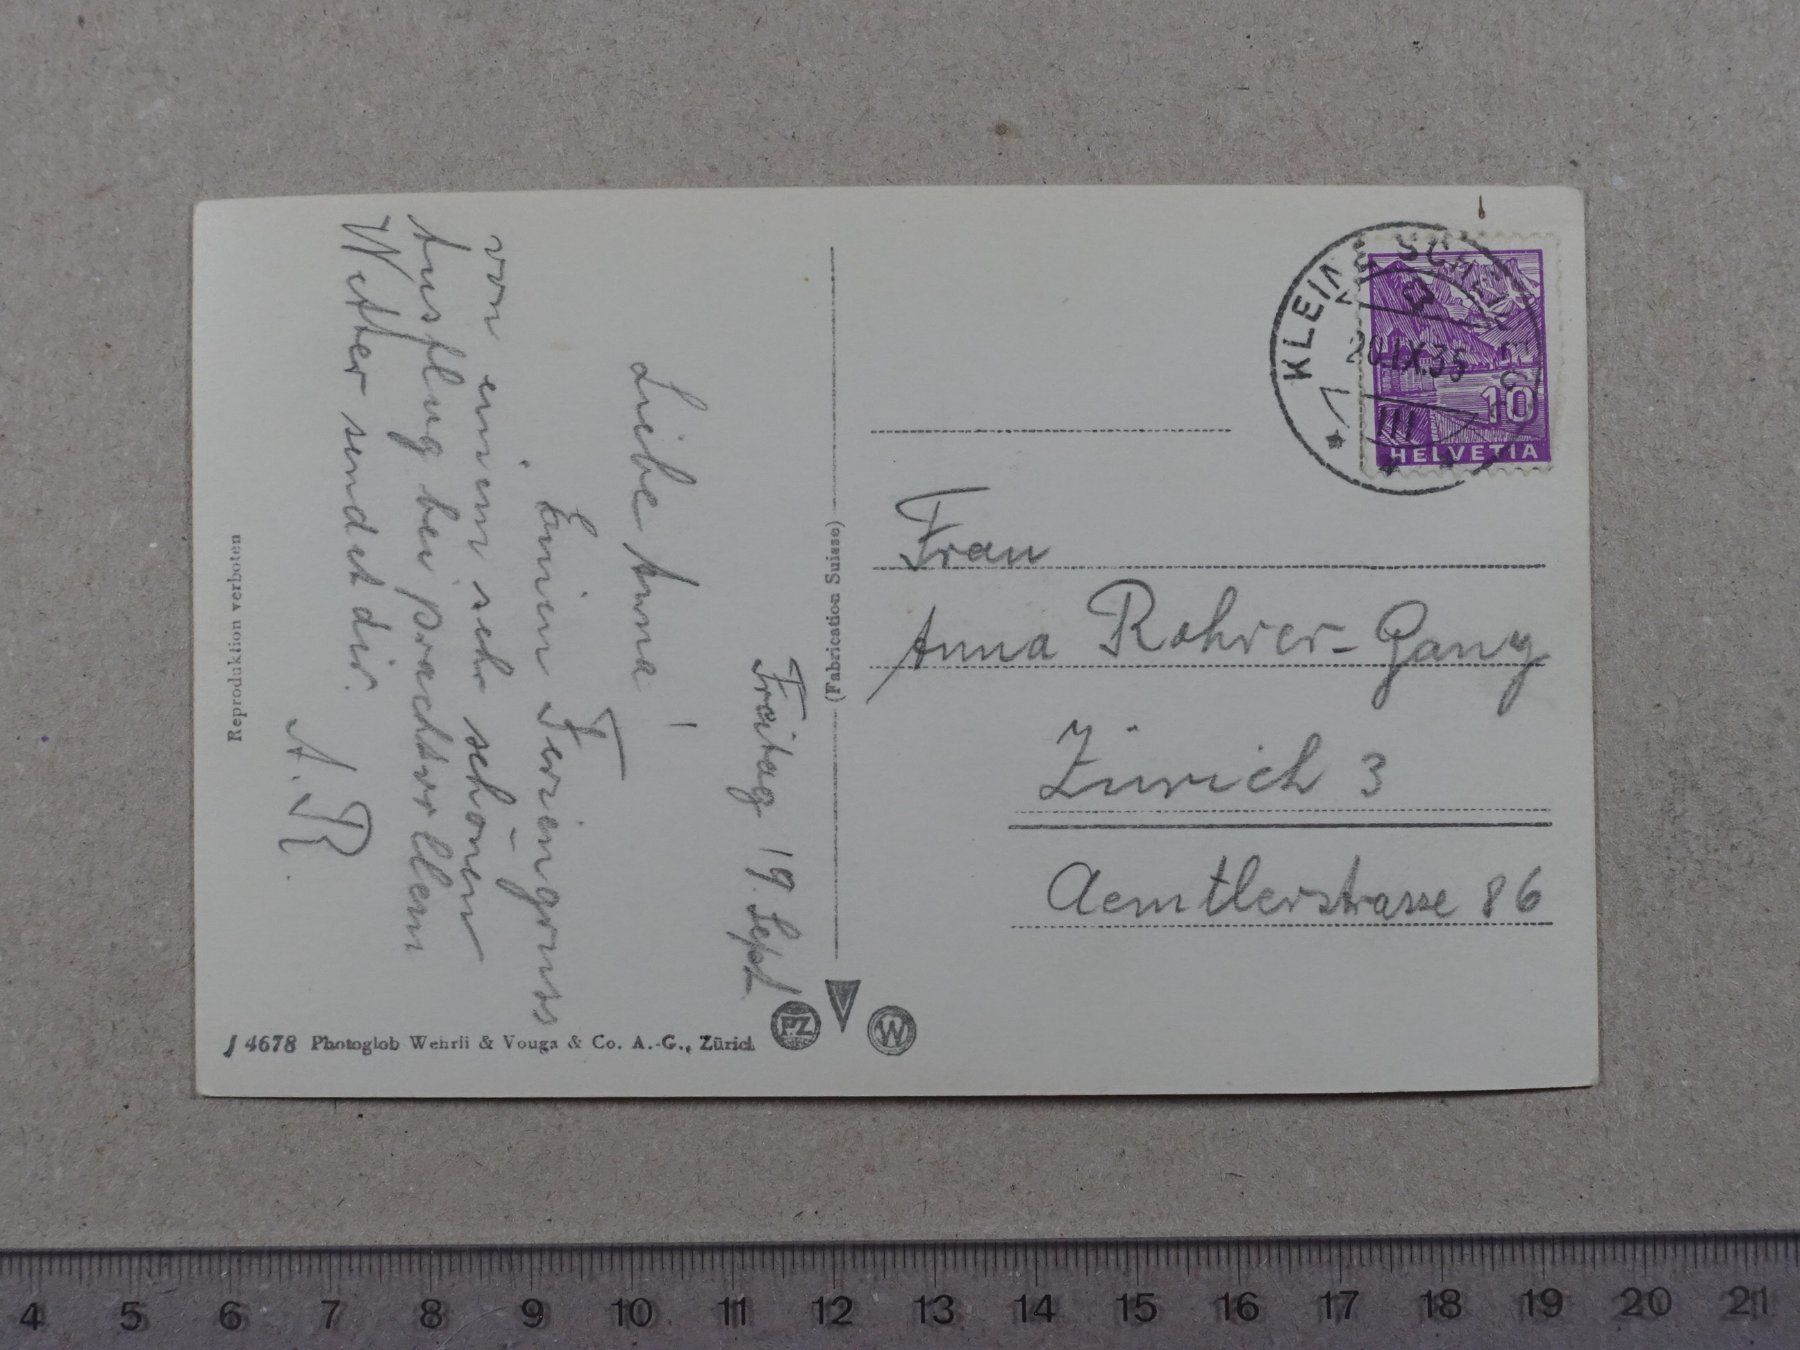 Freitag 19. Sept.
Liebe Anna!
Einen Feriengruss
von einem sehr schönen
Ausflug bei prachtvollem
Wetter sendet dir.
A. R.
Reproduktion verboten
J 4678 Photoglob Wehrli & Vouga & Co. A.-G., Zürich
(Fabrication Suisse)
P.Z
W
KLEINE SCH
20.IX.35
III
10
HELVETIA
Frau
Anna Rohrer-Gang
Zürich 3
Aemtlerstrasse 86
4 5 6 7 8 9 10 11 12 13 14 15 16 17 18 19 20 21